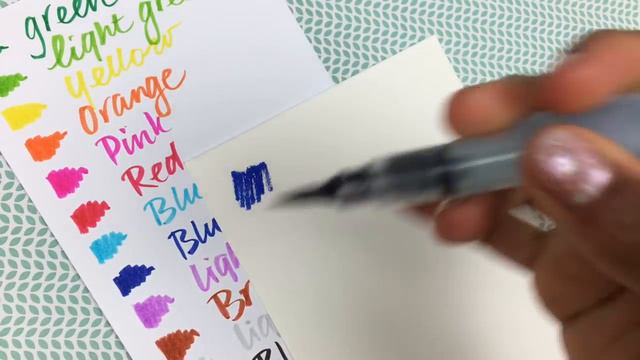 green
light gre
Yellow
Orange
Pink
Red
Blu
Blu
ligh
Br
lig
Bl